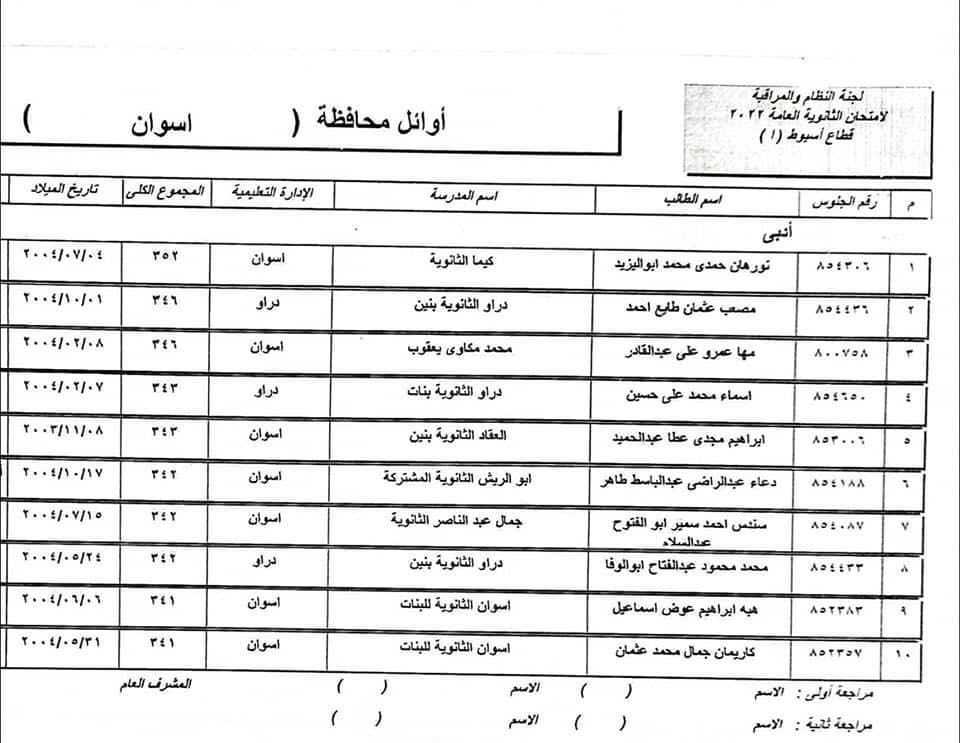 لجنة النظام والمراقبة
لامتحان الثانوية العامة ٢٠٢٢
قطاع أسيوط (١)
أوائل محافظة ( اسوان )
م رقم الجلوس اسم الطالب اسم المدرسة الإدارة التعليمية المجموع الكلى تاريخ الميلاد
أدبى
١ ٨٥٤٣٠٦ نورهان حمدى محمد ابواليزيد كيما الثانوية اسوان ٣٥٢ ٢٠٠٤/٠٧/٠٤
٢ ٨٥٤٤٣٦ مصعب عثمان طايع احمد دراو الثانوية بنين دراو ٣٤٦ ٢٠٠٤/١٠/٠١
٣ ٨٠٠٧٥٨ مها عمرو على عبدالقادر محمد مكاوى يعقوب اسوان ٣٤٦ ٢٠٠٤/٠٢/٠٨
٤ ٨٥٤٦٥٠ اسماء محمد على حسين دراو الثانوية بنات دراو ٣٤٣ ٢٠٠٤/٠٢/٠٧
٥ ٨٥٣٠٠٦ ابراهيم مجدى عطا عبدالحميد العقاد الثانوية بنين اسوان ٣٤٣ ٢٠٠٣/١١/٠٨
٦ ٨٥٤١٨٨ دعاء عبدالراضى عبدالباسط طاهر ابو الريش الثانوية المشتركة اسوان ٣٤٢ ٢٠٠٤/١٠/١٧
٧ ٨٥٤٠٨٧ سندس احمد سمير ابو الفتوح جمال عبد الناصر الثانوية اسوان ٣٤٢ ٢٠٠٤/٠٧/١٥
عبدالسلام
٨ ٨٥٤٤٣٣ محمد محمود عبدالفتاح ابوالوفا دراو الثانوية بنين دراو ٣٤٢ ٢٠٠٤/٠٥/٢٤
٩ ٨٥٢٣٨٣ هبه ابراهيم عوض اسماعيل اسوان الثانوية للبنات اسوان ٣٤١ ٢٠٠٤/٠٦/٠٦
١٠ ٨٥٢٣٥٧ كاريمان جمال محمد عثمان اسوان الثانوية للبنات اسوان ٣٤١ ٢٠٠٤/٠٥/٣١
مراجعة أولى : الاسم ( ) الاسم ( ) المشرف العام
مراجعة ثانية : الاسم ( ) الاسم ( )